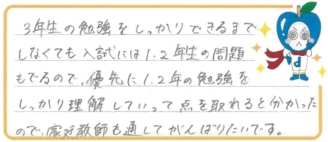 3年生の勉強をしっかりできるまで
しなくても入試には1.2年生の問題
もでるので、優先に1.2年の勉強を
しっかり理解していって点を取れると分かった
ので、家庭教師も通してがんばりたいです。
d